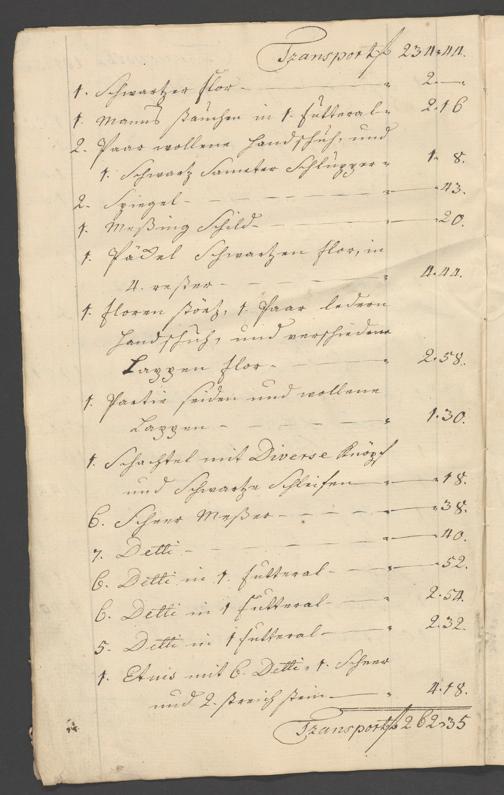 Transport f 234"44.
1. Schwartzer flor — " 2."—
1. Manns in 1. futteral " 2.16
2. Paar wollene Handschuh, und
1. Schwartz Sameter Schlupper " 1"8.
2. Spiegel — " —"43.
1. Meßing Schild — " —"20.
1. Päckel Schwartzen flor, in
4. rester — " 4.44.
1. floren 1. Paar ledern
Handschuh, und verschiedene
Lappen flor — " 2.58.
1. Partie seiden und wollene
Lappen — " 1.30.
1. Schachtel mit Diverse Knöpf
und Schwartze Schleifen — " —"18.
6. Scheer Meßer — " —"38.
7. Detti — " —"40.
6. Detti in 1. futteral — " —"52.
6. Detti in 1 futteral — " 2.54.
5. Detti in 1 futteral — " 2.32.
1. Etuis mit 6. Detti, 1. Scheer
und 2. streichstein — " 4.18.
Transport f 262"35